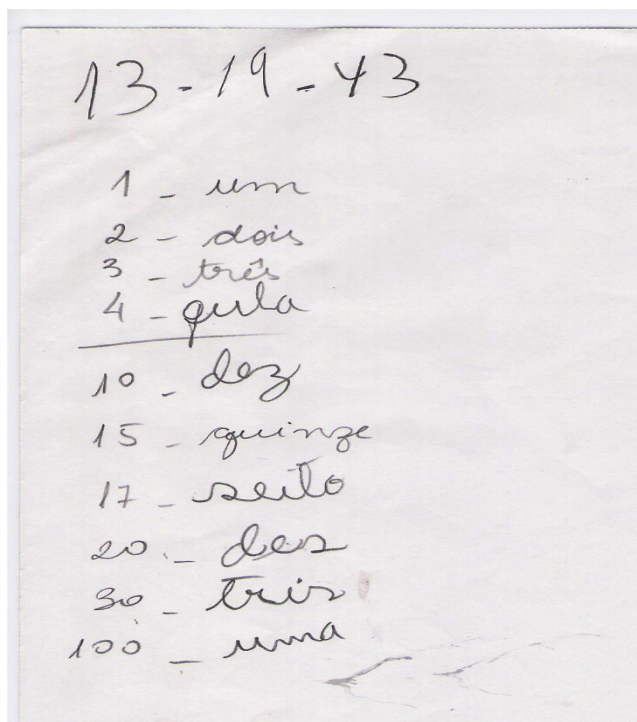 13 - 19 - 43
1 - um
2 - dois
3 - três
4 - qula
10 - dez
15 - quinze
17 - seito
20 - des
30 - tris
100 - uma